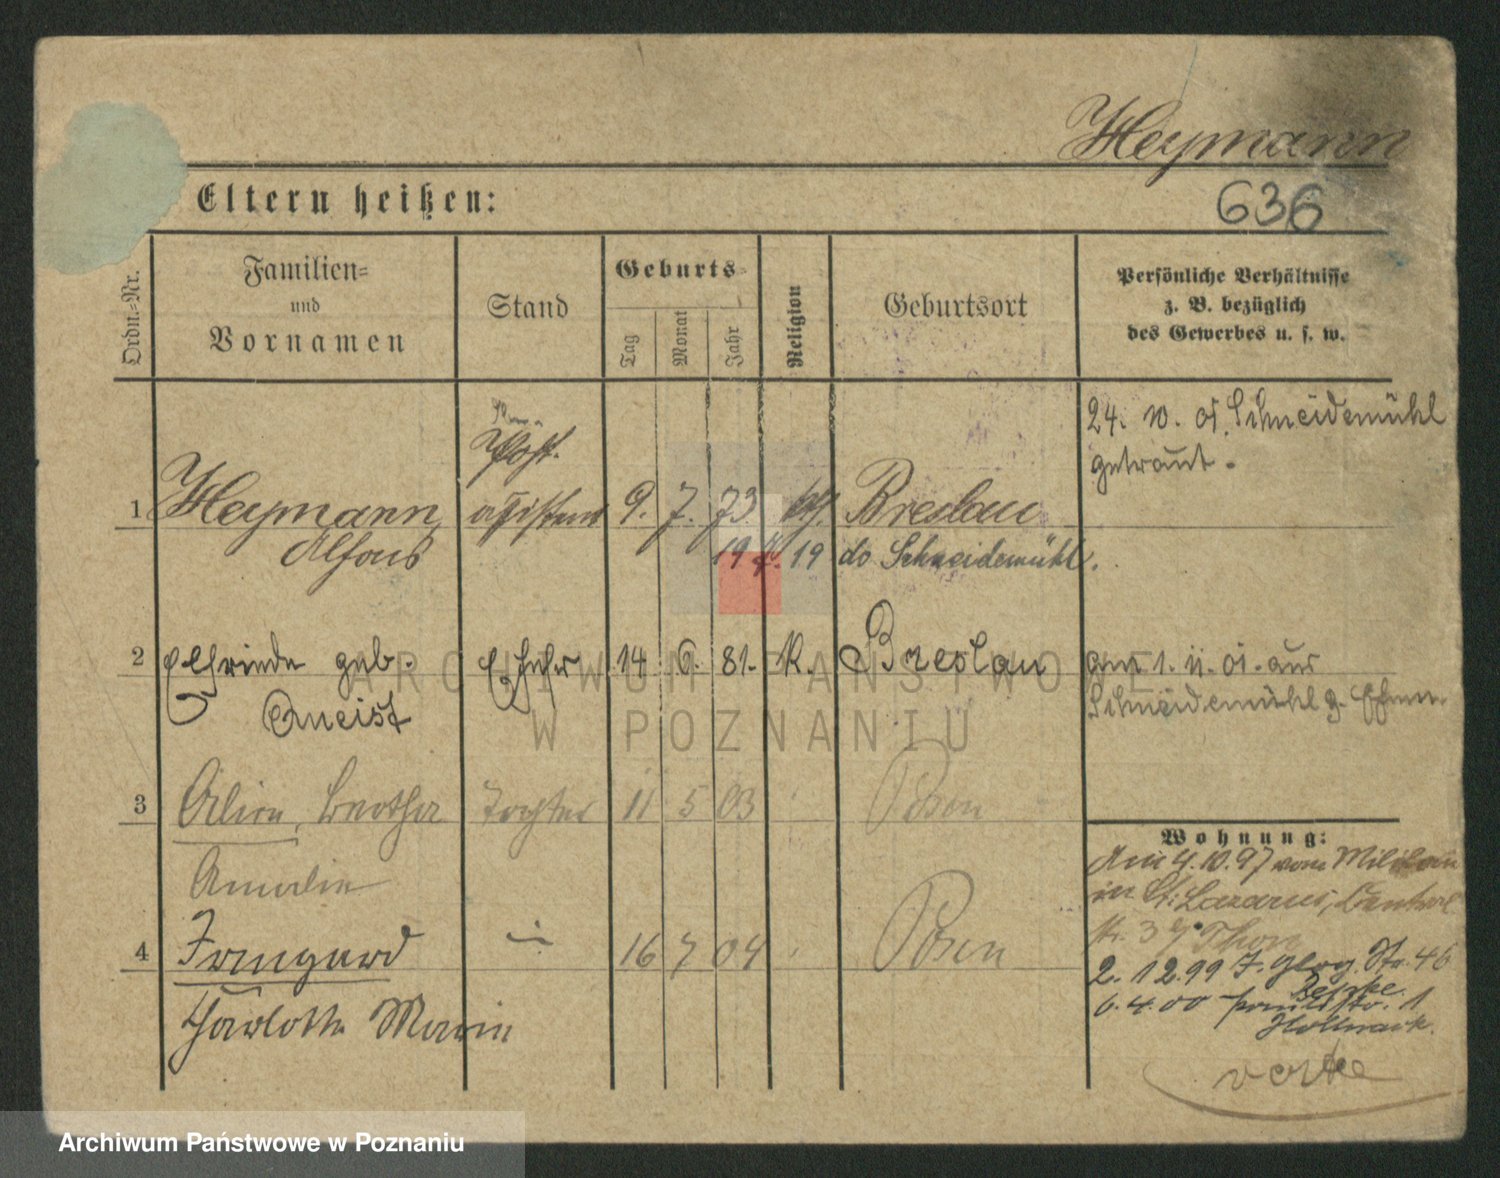 Heymann
636
Eltern heißen:
Ordn.-Nr.
Familien-
und
Vornamen
Stand
Geburts-
Tag
Monat
Jahr
Religion
Geburtsort
Persönliche Verhältnisse
z. B. bezüglich
des Gewerbes u. s. w.
24. 10. 01 Schneidemühl
getraut.
Post-
1 Heymann, assistent 9. 7. 73. Breslau
Alfons 19 19 do Schneidemühl.
2 Elfriede geb. Ehefr 14 6. 81. K. Breslau
Gneist
am 1. 11. 01. aus
Schneidemühl z. Ehem
3 Alice, Bertha Tochter 11 5 03 Posen
Amalie
4 Irmgard 16 7 04 Posen
Charlotte Marie
Wohnung:
Am 4.10.97 vom Militär
in St. Lazarus,
str. 3
2. 12. 99 Str. 46
6. 4. 00 str. 1
ARCHIWUM PAŃSTWOWE
W POZNANIU
Archiwum Państwowe w Poznaniu